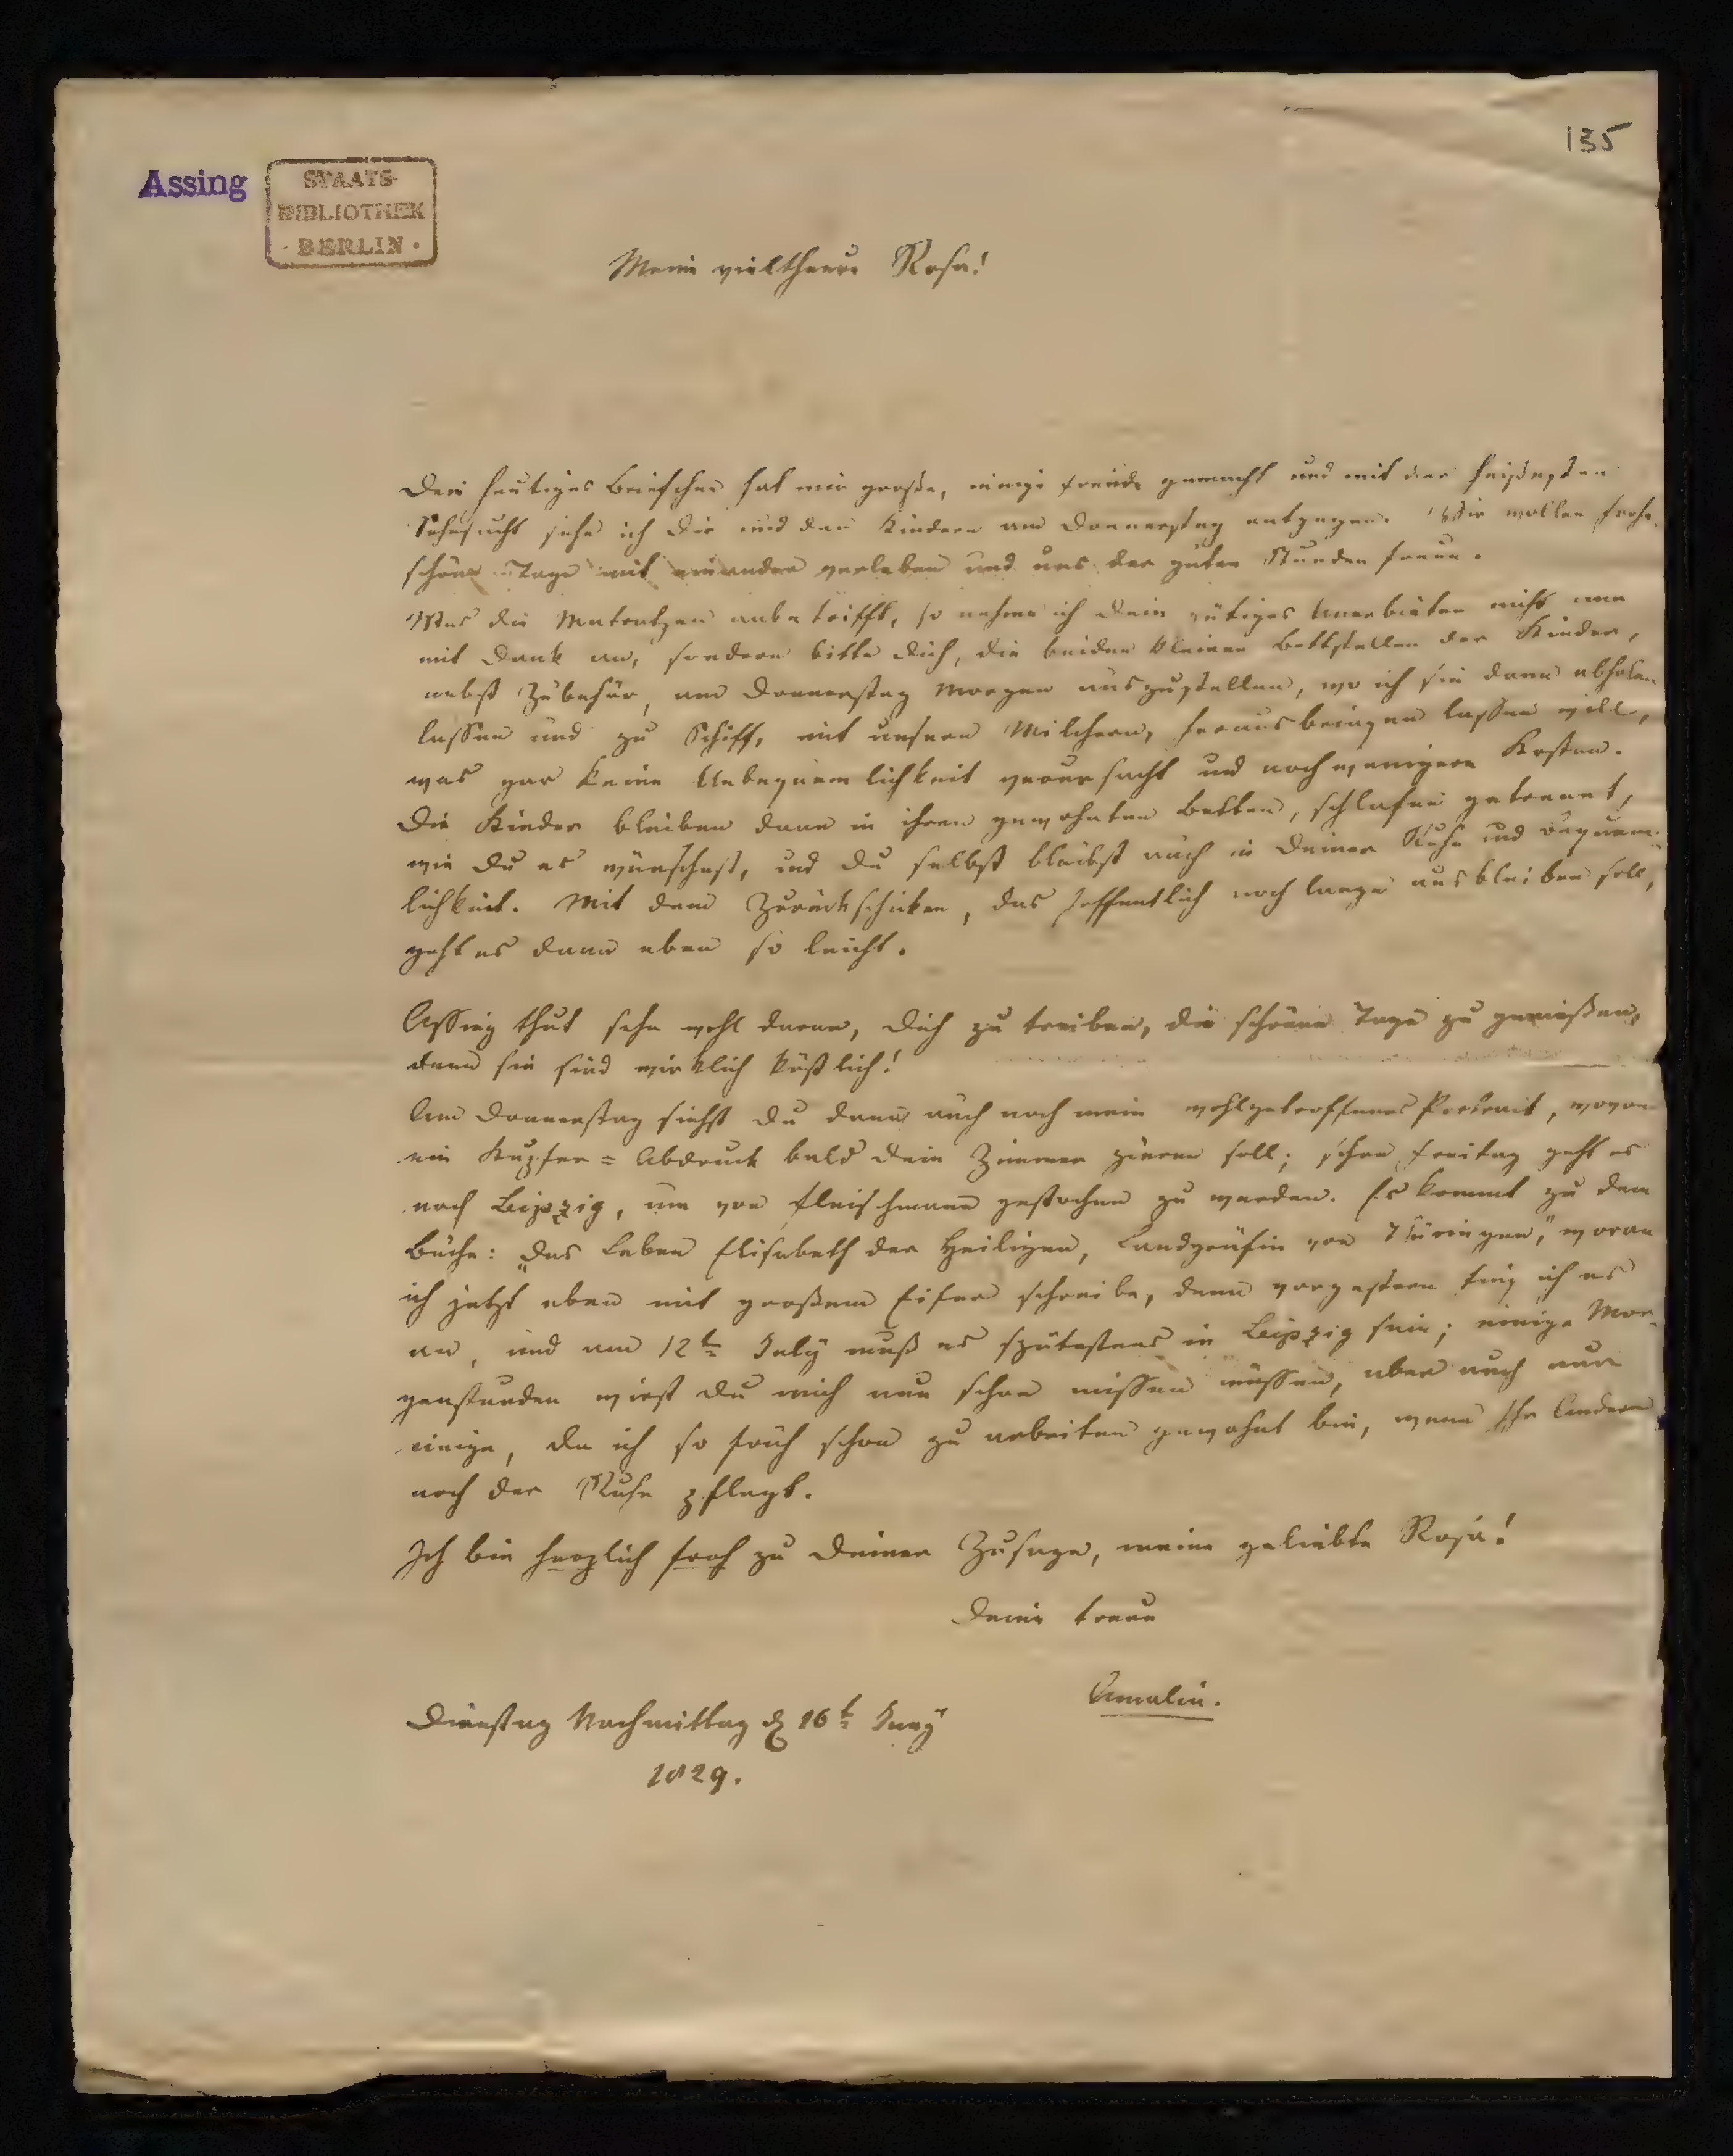 135
Assing
STAATS-
BIBLIOTHEK
· BERLIN ·
Meine vieltheure Rosa!
Dein heutiges Briefchen hat mir große, innige Freude gemacht und mit der heißesten
Sehnsucht sehe ich Dir und den Kindern am Donnerstag entgegen. Wir wollen frohe
schöne Tage mit einander verleben und uns der guten Stunden freuen.
Was die Matratzen anbetrifft, so nehme ich Dein gütiges Anerbieten nicht nur
mit Dank an, sondern bitte Dich, die beiden kleinen Bettstellen der Kinder,
nebst Zubehör, am Donnerstag Morgen auszustellen, wo ich sie dann abholen
lassen und zu Schiff, mit unsern Milchern, herausbringen lassen will,
was gar keine Unbequemlichkeit verursacht und noch weniger Kosten.
Die Kinder bleiben dann in ihren gewohnten Betten, schlafen getrennt,
wie Du es wünschest, und Du selbst bleibst auch in Deiner Ruhe und Bequem-
lichkeit. Mit dem Zurückschicken, das hoffentlich noch lange ausbleiben soll,
geht es dann eben so leicht.
Assing thut sehr wohl daran, Dich zu treiben, die schönen Tage zu genießen,
denn sie sind wirklich köstlich!
Am Donnerstag siehst Du dann auch noch mein wohlgetroffenes Portrait, wovon
ein Kupfer=Abdruck bald Dein Zimmer zieren soll; schon Freitag geht es
nach Leipzig, um von Fleischmann gestochen zu werden. Es kommt zu dem
Buche: „Das Leben Elisabeth der Heiligen, Landgräfin von Thüringen," woran
ich jetzt eben mit großem Eifer schreibe, denn vorgestern fing ich es
an, und am 12t July muß es spätestens in Leipzig sein; einige Mor-
genstunden wirst Du mich nun schon missen müssen, aber auch nur
einige, da ich so früh schon zu arbeiten gewohnt bin, wenn Ihr Andern
noch der Ruhe pflegt.
Ich bin herzlich froh zu Deiner Zusage, meine geliebte Rosa!
Deine treue
Amalie.
Dienstag Nachmittag d 16t Juny
1829.